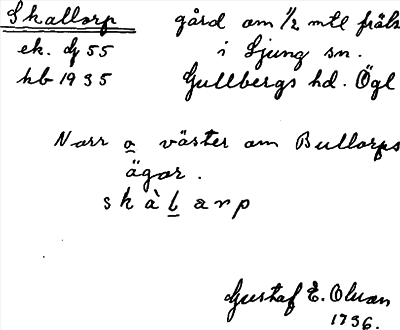 Skallorp gård om 1/2 mtl fräls
ek. dj 55 i Ljung sn.
hb 1935 Gullbergs hd. Ögl
Norr o väster om Bullorps
ägor.
skàlarp
Gustaf E. Olsson
1936.